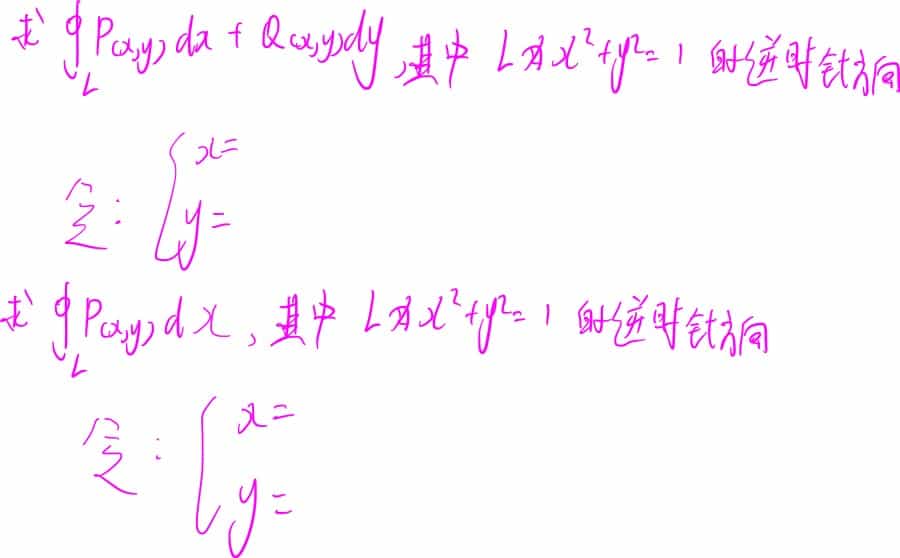 求 ∮_L P(x,y)dx + Q(x,y)dy,其中 L为x²+y²=1 的逆时针方向
令: { x=
y=
求 ∮_L P(x,y)dx, 其中 L为x²+y²=1 的逆时针方向
令: { x=
y=